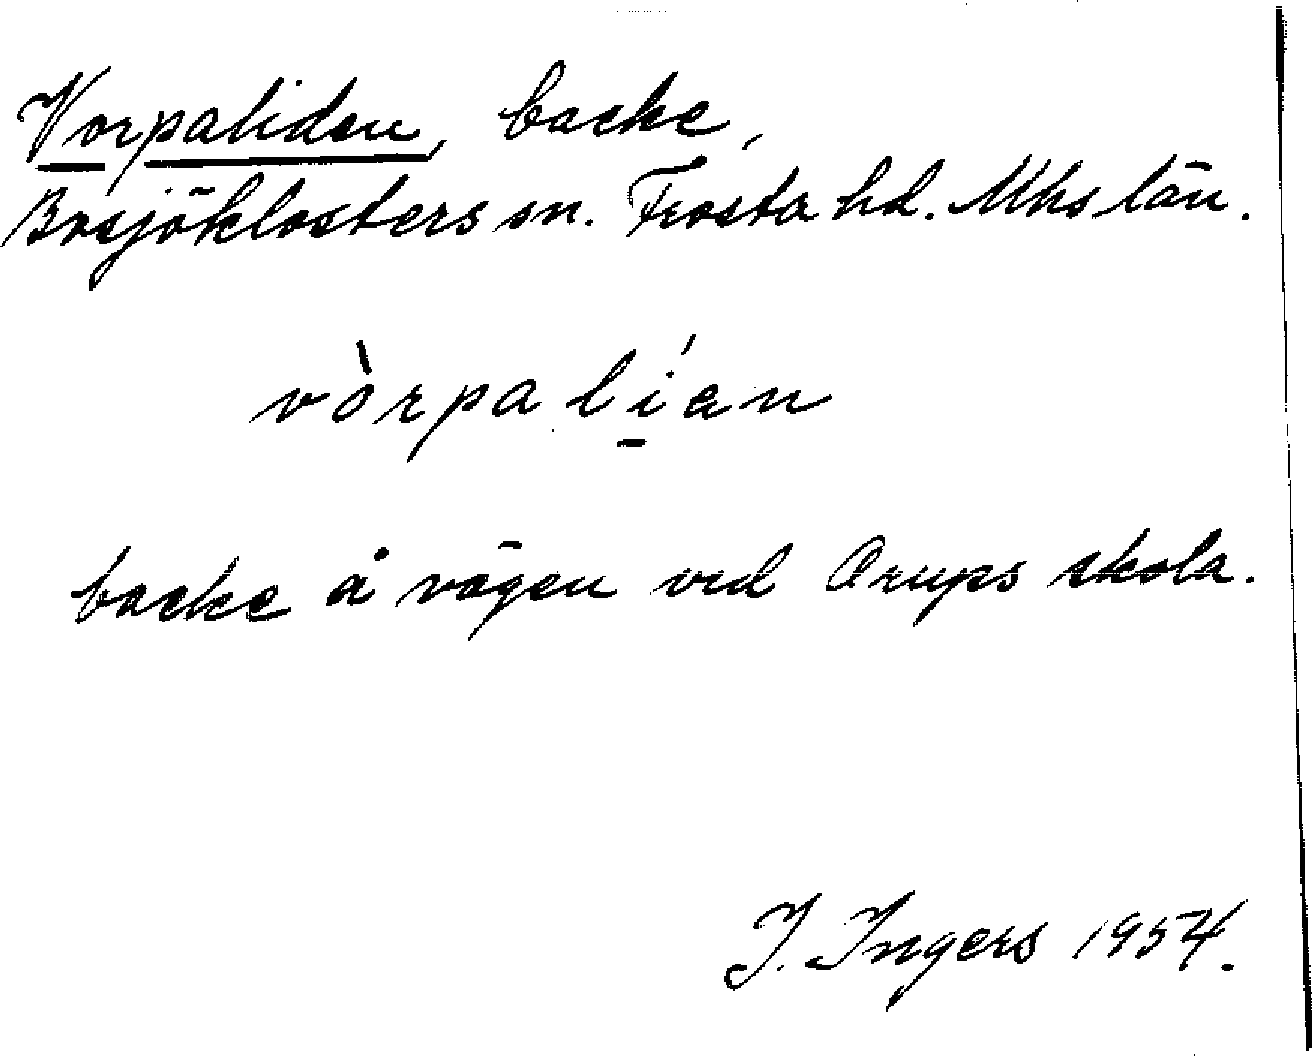 Vorpaliden, backe,
Bosjöklosters sn. Frosta hd. Mhs län.
vòrpa lían
backe å vägen vid Orups skola.
I. Ingers 1954.